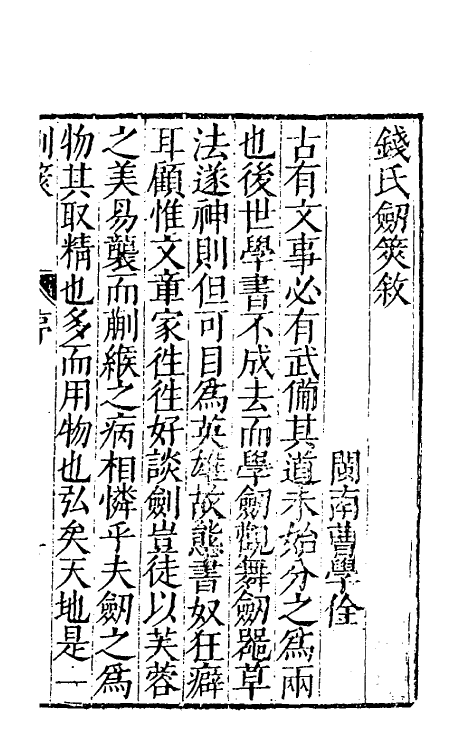 錢氏劒筴敘
閩南曹學佺
古有文事必有武備其道未始分之為兩
也後世學書不成去而學劒觀舞劒器草
法遂神則但可目為英雄故態書奴狂癖
耳顧惟文章家徃徃好談劍豈徒以芙蓉
之美易襲而蒯緱之病相憐乎夫劒之為
物其取精也多而用物也弘矣天地是一
劍筴
序
一